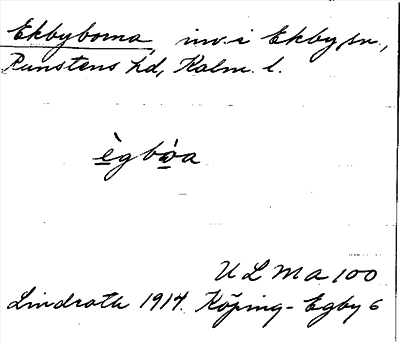 Ekbyborna, inv. i Ekby sn,
Runstens hd, Kalm. l.
ègbòa
ULMA 100
Lindroth 1914. Köping-Egby 6